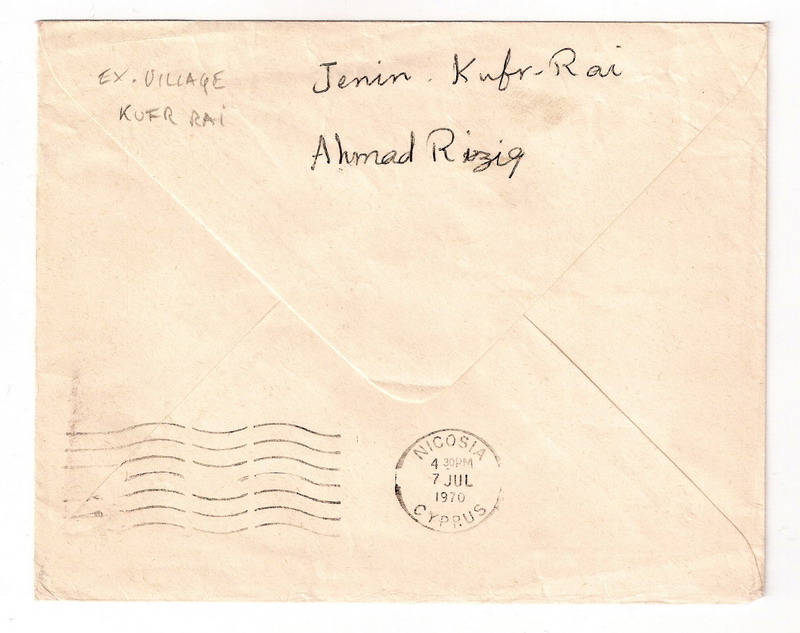 EX. VILLAGE
KUFR RAI
Jenin. Kufr-Rai
Ahmad Rizziq
NICOSIA
4 30PM
7 JUL
1970
CYPRUS